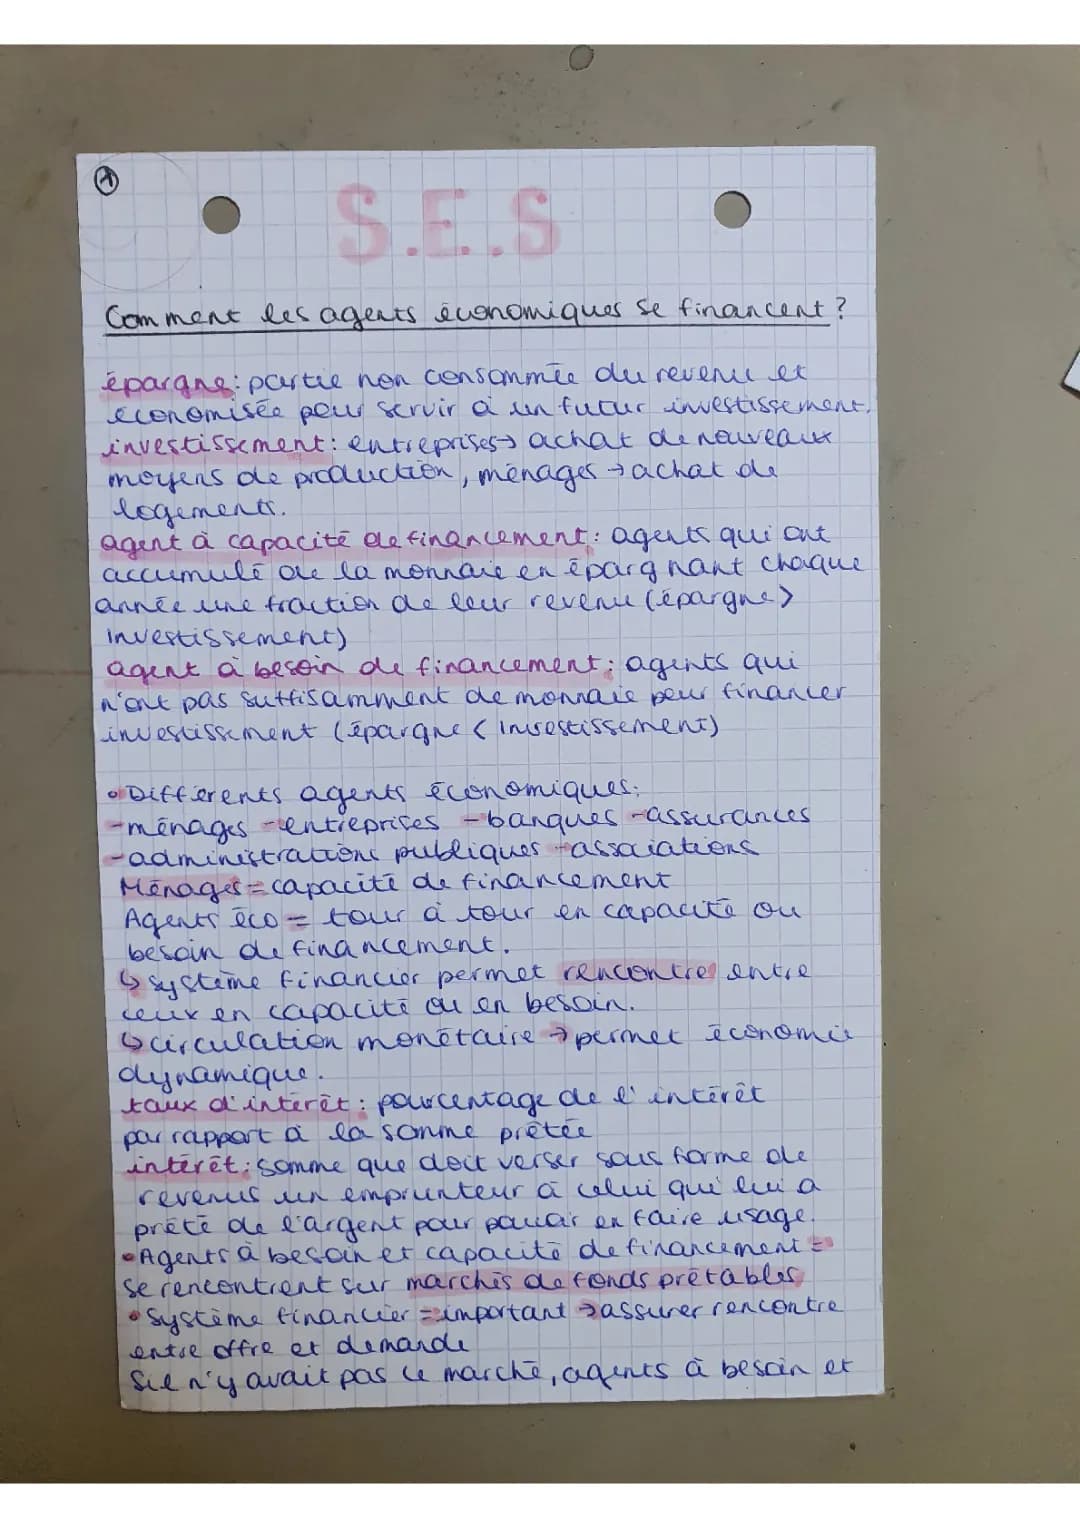 1
S.E.S
Comment les agents économiques se financent ?
épargne : partie non consommée du revenu et
économisée pour servir à un futur investissement.
investissement : entreprises → achat de nouveaux
moyens de production, ménages → achat de
logements.
agent à capacité de financement : agents qui ont
accumulé de la monnaie en épargnant chaque
année une fraction de leur revenu (épargne >
investissement)
agent à besoin de financement : agents qui
n'ont pas suffisamment de monnaie pour financer
investissement (épargne < investissement)
• Différents agents économiques :
- ménages - entreprises - banques - assurances
- administrations publiques - associations
Ménages = capacité de financement
Agents éco = tour à tour en capacité ou
besoin de financement.
↳ système financier permet rencontre entre
ceux en capacité ou en besoin.
↳ circulation monétaire → permet économie
dynamique.
taux d'intérêt : pourcentage de l'intérêt
par rapport à la somme prêtée
intérêt : somme que doit verser sous forme de
revenus un emprunteur à celui qui lui a
prêté de l'argent pour pouvoir en faire usage.
• Agents à besoin et capacité de financement =
se rencontrent sur marchés de fonds prêtables
• Système financier = important → assurer rencontre
entre offre et demande
s'il n'y avait pas ce marché, agents à besoin et